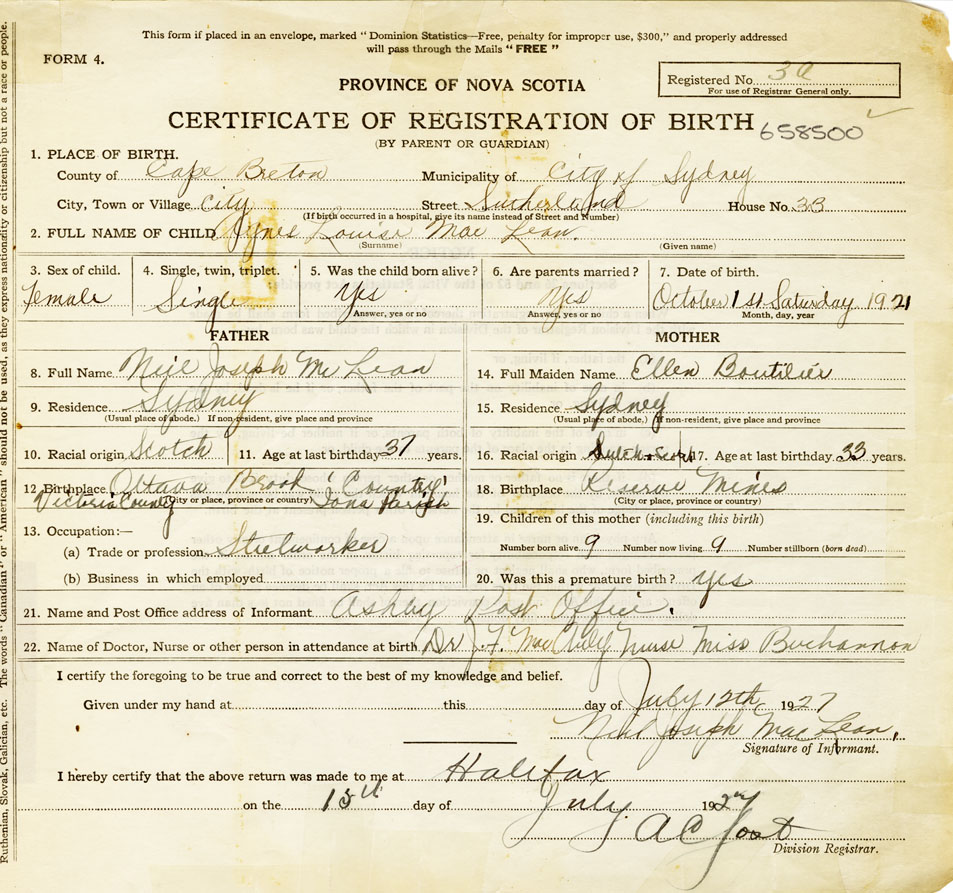 This form if placed in an envelope, marked "Dominion Statistics—Free, penalty for improper use, $300," and properly addressed
will pass through the Mails "FREE"
FORM 4.
PROVINCE OF NOVA SCOTIA
Registered No.
For use of Registrar General only.
CERTIFICATE OF REGISTRATION OF BIRTH 658500
(BY PARENT OR GUARDIAN)
1. PLACE OF BIRTH.
County of Cape Breton Municipality of City of Sydney
City, Town or Village City Street Sutherland House No. 33
(If birth occurred in a hospital, give its name instead of Street and Number)
2. FULL NAME OF CHILD Agnes Louise Mac Lean.
(Surname) (Given name)
3. Sex of child. 4. Single, twin, triplet. 5. Was the child born alive? 6. Are parents married? 7. Date of birth.
Female Single Yes Yes October 1st Saturday 1921
Answer, yes or no Answer, yes or no Month, day, year
FATHER MOTHER
8. Full Name Neil Joseph Mc Lean 14. Full Maiden Name Ellen Boutilier
9. Residence Sydney 15. Residence Sydney
(Usual place of abode.) If non-resident, give place and province (Usual place of abode.) If non-resident, give place and province
10. Racial origin Scotch 11. Age at last birthday 37 years. 16. Racial origin Dutch + Scotch 17. Age at last birthday. 33 years.
12 Birthplace Ottawa Brook (Country) 18. Birthplace Reserve Mines
Victoria County (City or place, province or country) Iona Parish (City or place, province or country)
13. Occupation:— 19. Children of this mother (including this birth)
(a) Trade or profession Steelworker Number born alive 9 Number now living 9 Number stillborn (born dead)
(b) Business in which employed 20. Was this a premature birth? yes
21. Name and Post Office address of Informant Ashby Post Office.
22. Name of Doctor, Nurse or other person in attendance at birth Dr J. F. Nurse Miss Buchannon
I certify the foregoing to be true and correct to the best of my knowledge and belief.
Given under my hand at this day of July 12th, 1927
Neil Joseph Mac Lean.
Signature of Informant.
I hereby certify that the above return was made to me at Halifax
on the 13th day of July. 1927
A C Jost
Division Registrar.
Ruthenian, Slovak, Galician, etc. The words "Canadian" or "American" should not be used, as they express nationality or citizenship but not a race or people.